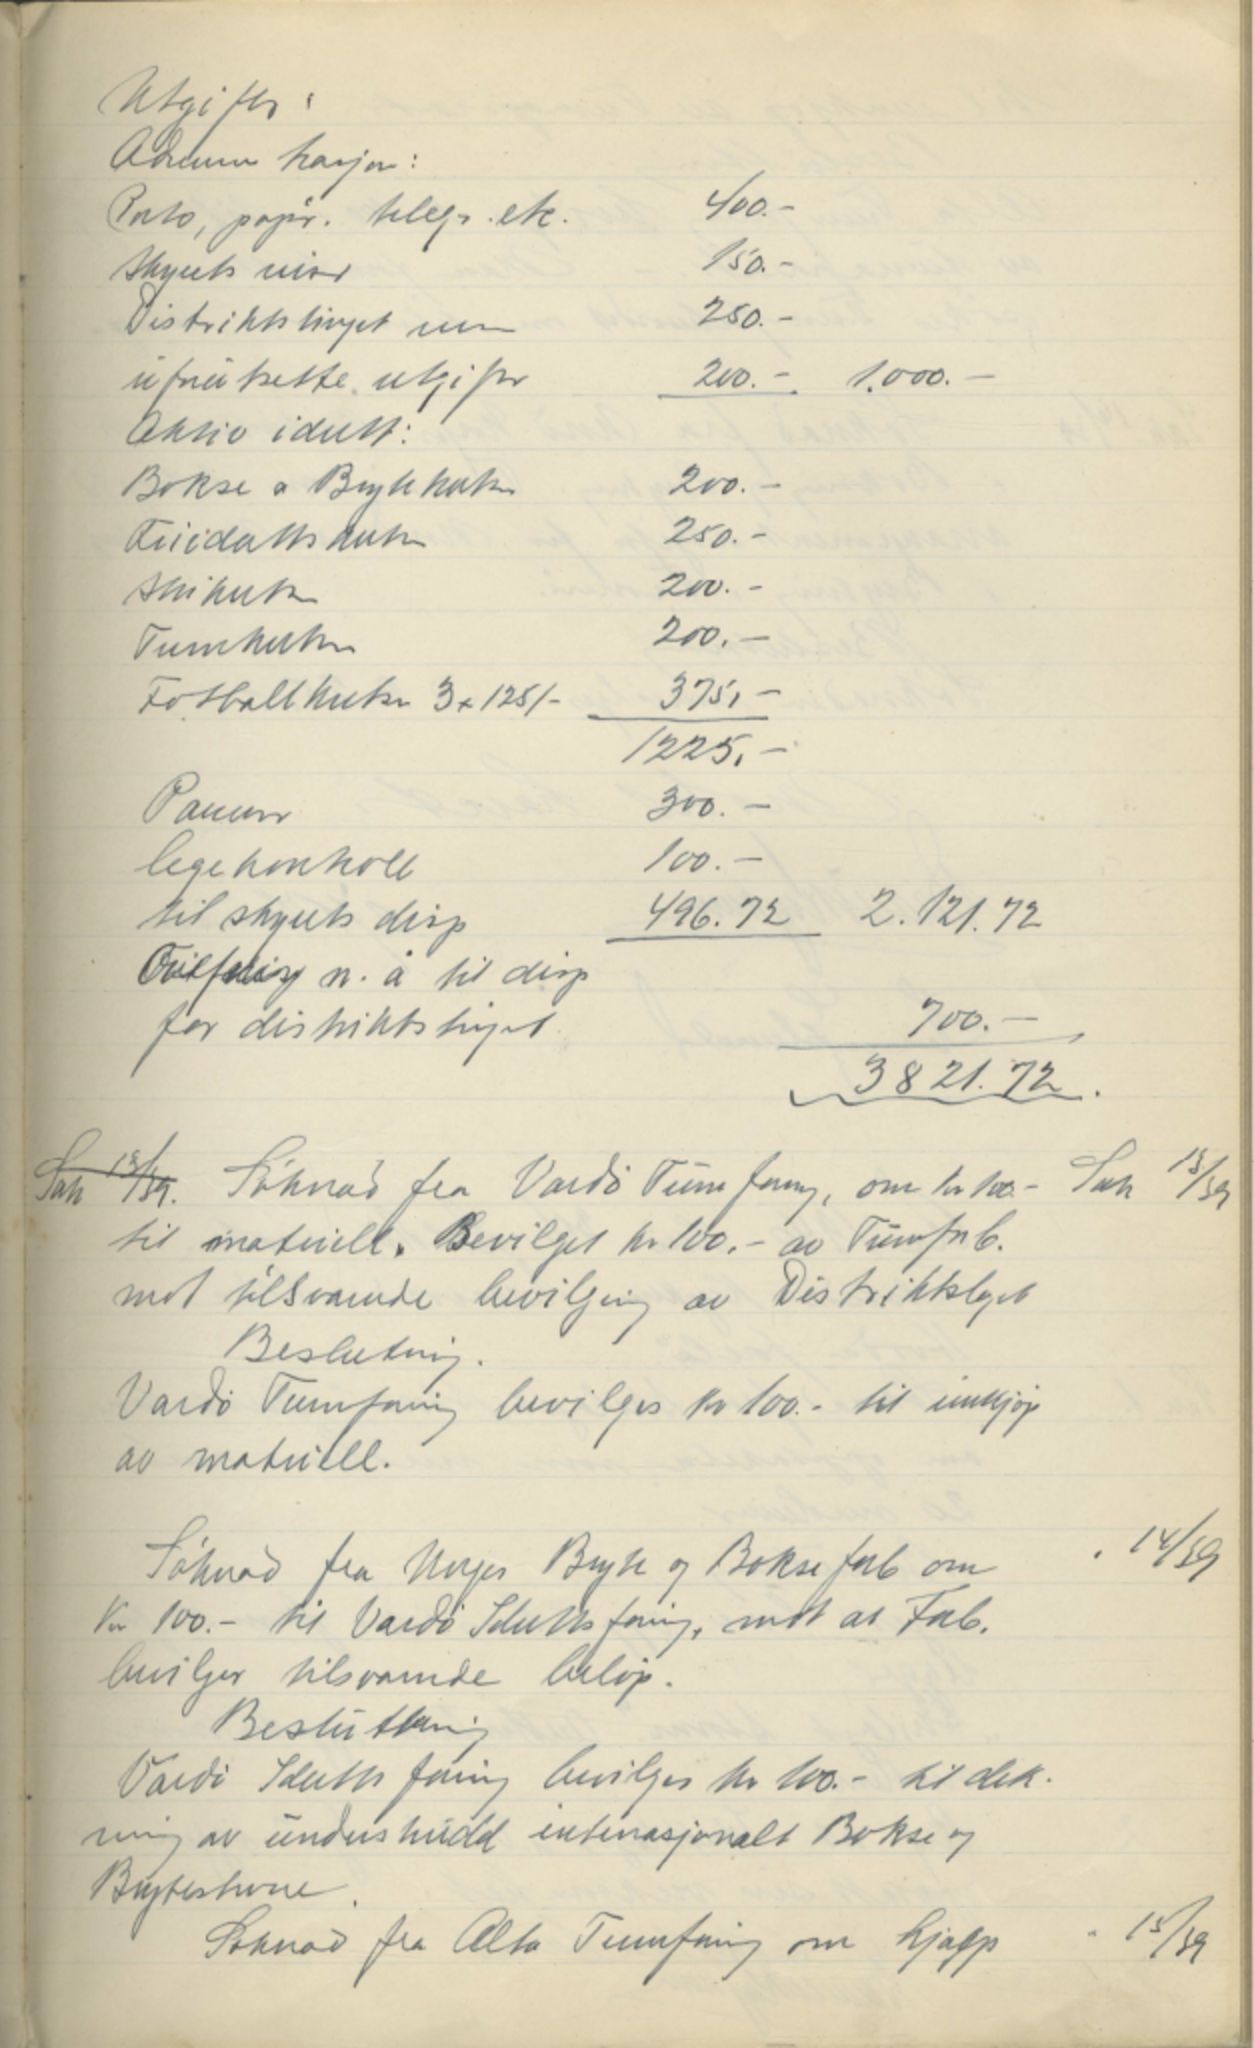 Utgifter:
Admini trasjon:
Porto, papir. telegr. etc. 400.-
Skyets 150.-
Distriktstinget 250.-
uforutsette utgifter 200.- 1.000.-
Aktiv idrett:
Bokse & Brytekurs 200.-
Friidrettskurs 250.-
Skikurs 200.-
Turnkurs 200.-
Fotballkurs 3 x 125/- 375,-
1225,-
300.-
legekontroll 100.-
til skyets disp 496.72 2.121.72
n. å til disp
for distriktstinget 700.-
3821.72.
Sak 13/39. Söknad fra Vardö Turnforening, om kr 100.- Sak 13/39
til materiell. Bevilget kr 100,- av Turnforb.
mot tilsvarende bevilgning av Distriktslaget
Beslutning.
Vardö Turnforening bevilges kr 100.- til innkjöp
av materiell.
Söknad fra Norges Bryte og Bokseforb om " 14/39
Kr 100.- til Vardö Idrettsforening, mot at Forb.
bevilger tilsvarende belöp.
Beslutning
Vardö Idrettsforening bevilges kr 100.- til dek-
ning av underskudd internasjonalt Bokse og
Brytestevne.
Söknad fra Alta Turnforening om hjelp " 15/39